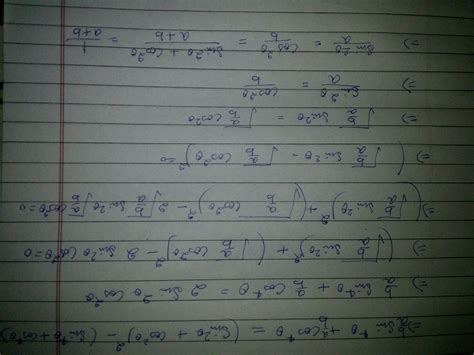 ⇒ b/a sin⁴θ + a/b cos⁴θ = (sin²θ + cos²θ)² - (sin⁴θ + cos⁴θ)
⇒ b/a sin⁴θ + a/b cos⁴θ = 2 sin²θ cos²θ
⇒ (√(b/a) sin²θ)² + (√(a/b) cos²θ)² - 2 sin²θ cos²θ = 0
⇒ (√(b/a) sin²θ)² + (√(a/b) cos²θ)² - 2 √(b/a) sin²θ √(a/b) cos²θ = 0
⇒ (√(b/a) sin²θ - √(a/b) cos²θ)² = 0
⇒ √(b/a) sin²θ = √(a/b) cos²θ
⇒ sin²θ/a = cos²θ/b
⇒ sin²θ/a = cos²θ/b = (sin²θ + cos²θ)/(a+b) = 1/(a+b)